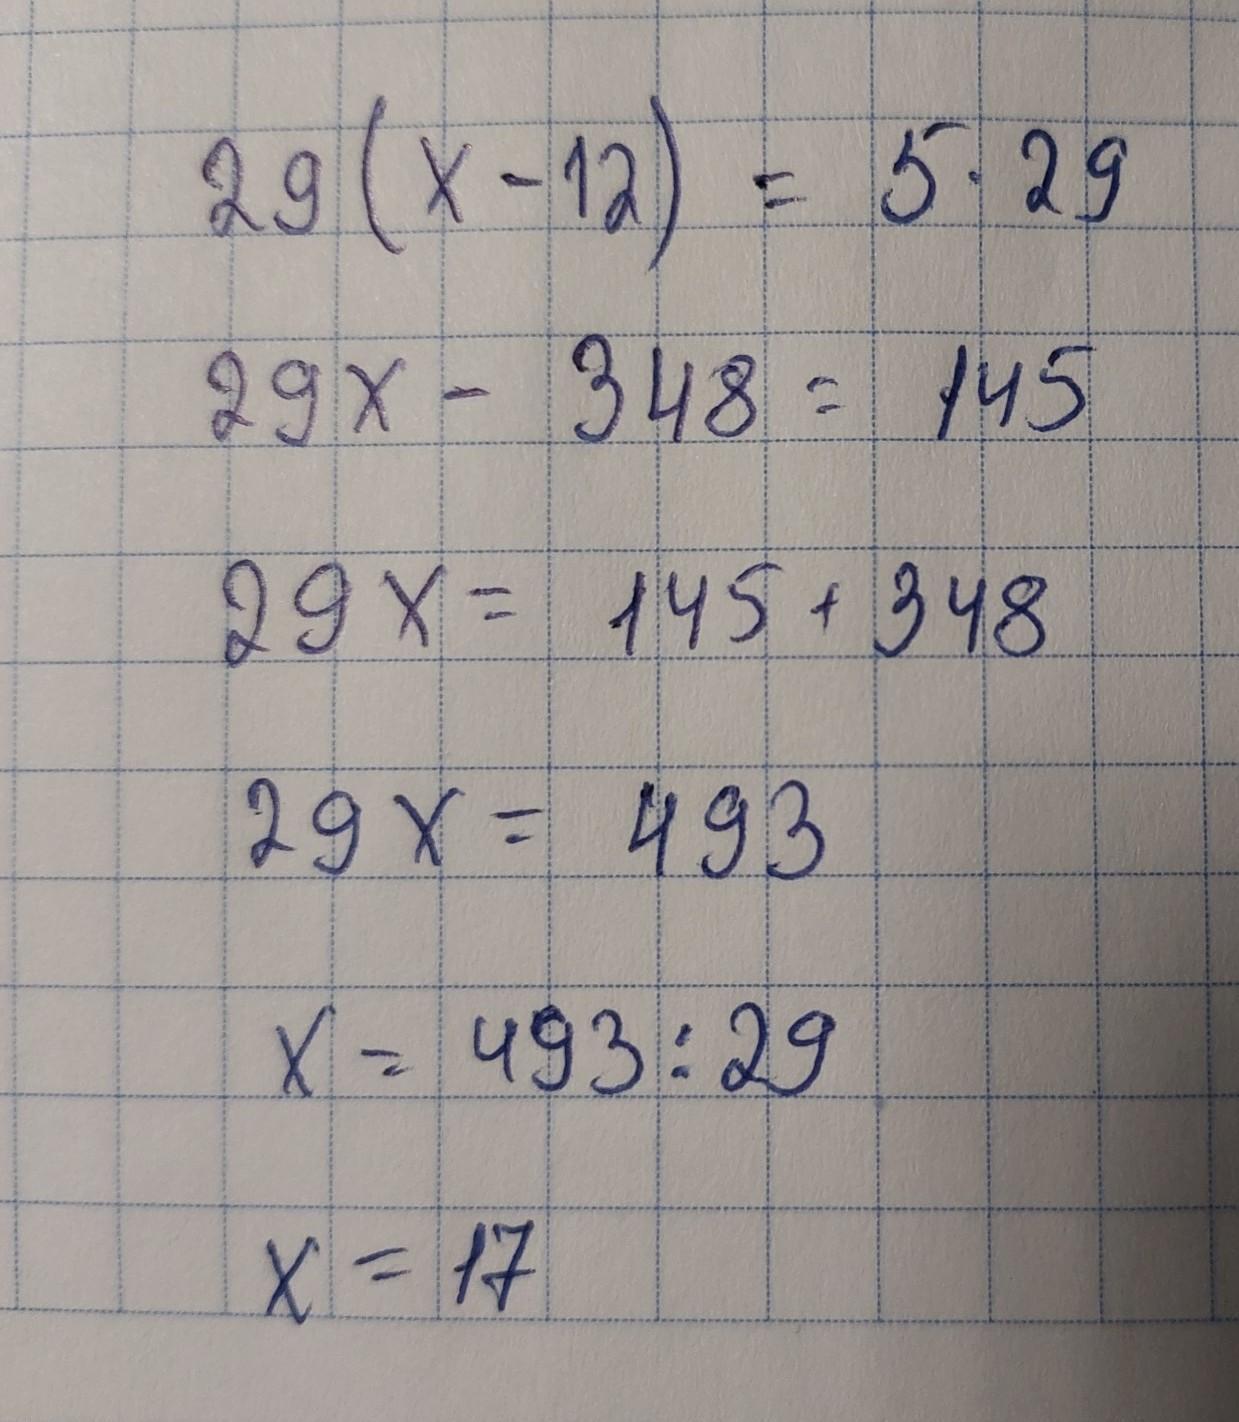 29(x-12) = 5·29
29x - 348 = 145
29x = 145 + 348
29x = 493
x = 493:29
x = 17